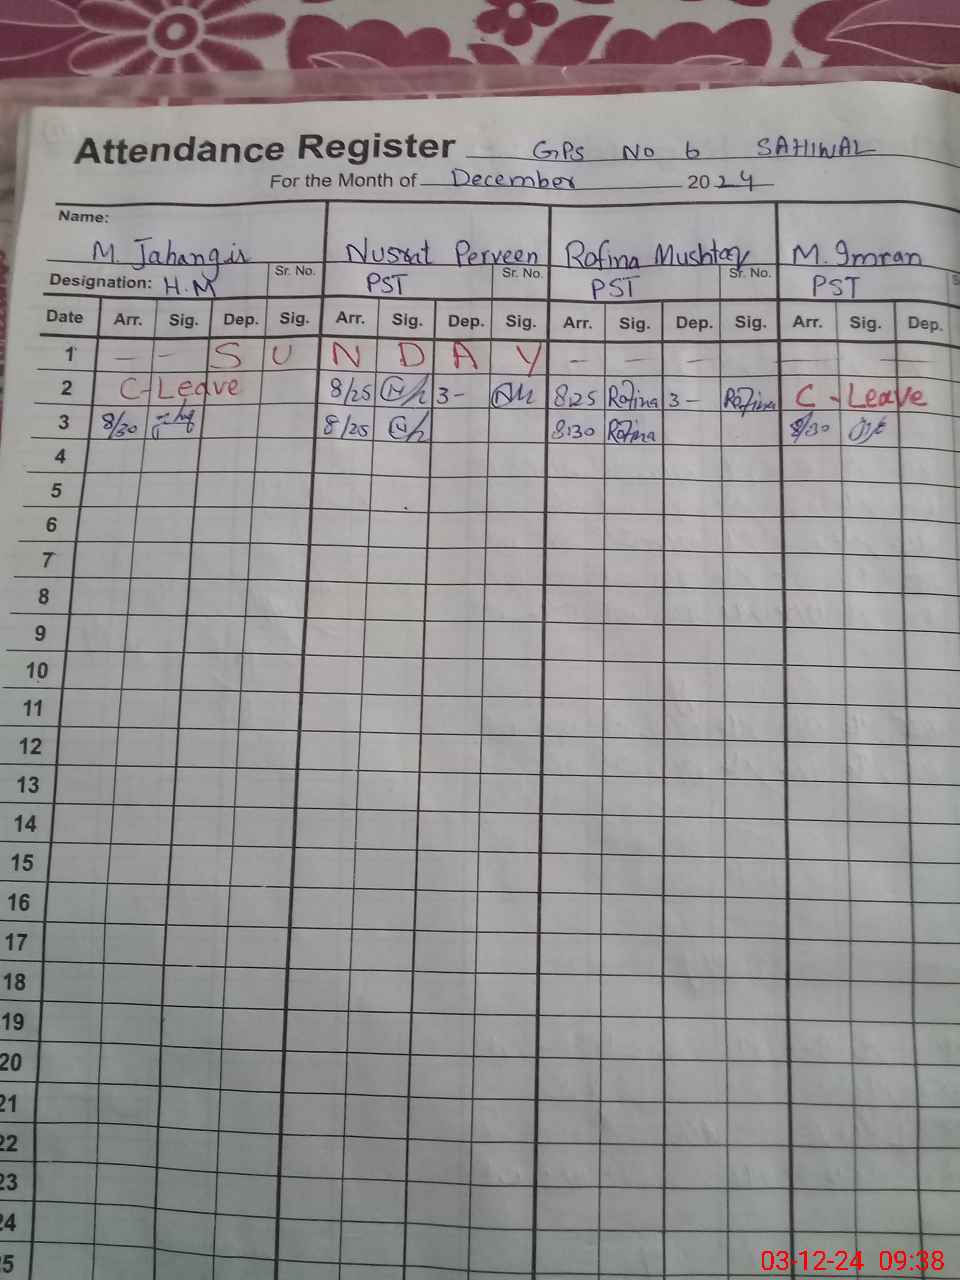 Attendance Register GPs No 6 SAHIWAL
For the Month of December 2024
Name:
M. Jahangir Nusrat Perveen Rofina Mushtaq M. Imran
Designation: H.M Sr. No. PST Sr. No. PST Sr. No. PST
Date Arr. Sig. Dep. Sig. Arr. Sig. Dep. Sig. Arr. Sig. Dep. Sig. Arr. Sig. Dep.
1 — - S U N D A Y - - - — —
2 C-Leave 8/25 3- 8.25 Rofina 3- Rofina C - Leave
3 8/30 8/25 8.30 Rofina 8/30
4
5
6
7
8
9
10
11
12
13
14
15
16
17
18
19
20
21
22
23
24
5
03-12-24 09:38